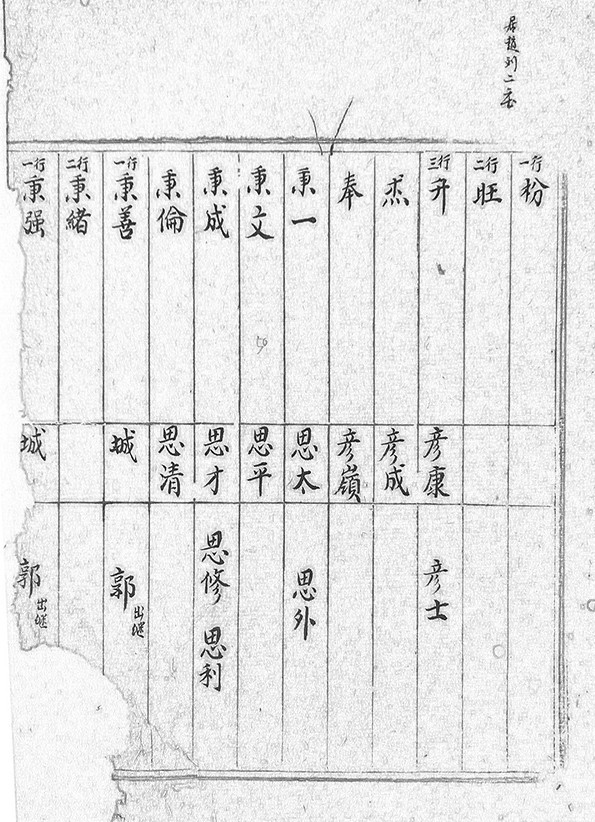 一行 枌
二行 旺
三行 升 彦康 彦士
杰 彦成
奉 彦嶺
秉一 思太 思外
秉文 思平
秉成 思才 思修 思利
秉倫 思清
一行 秉善 城 郭 出继
二行 秉緒
一行 秉强 城 郭 出继